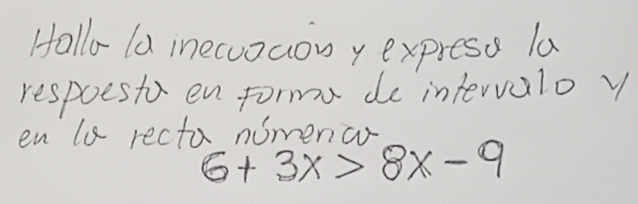 Halla la inecuación y expresa la
respuesta en forma de intervalo y
en la recta númerica
6 + 3x > 8x - 9